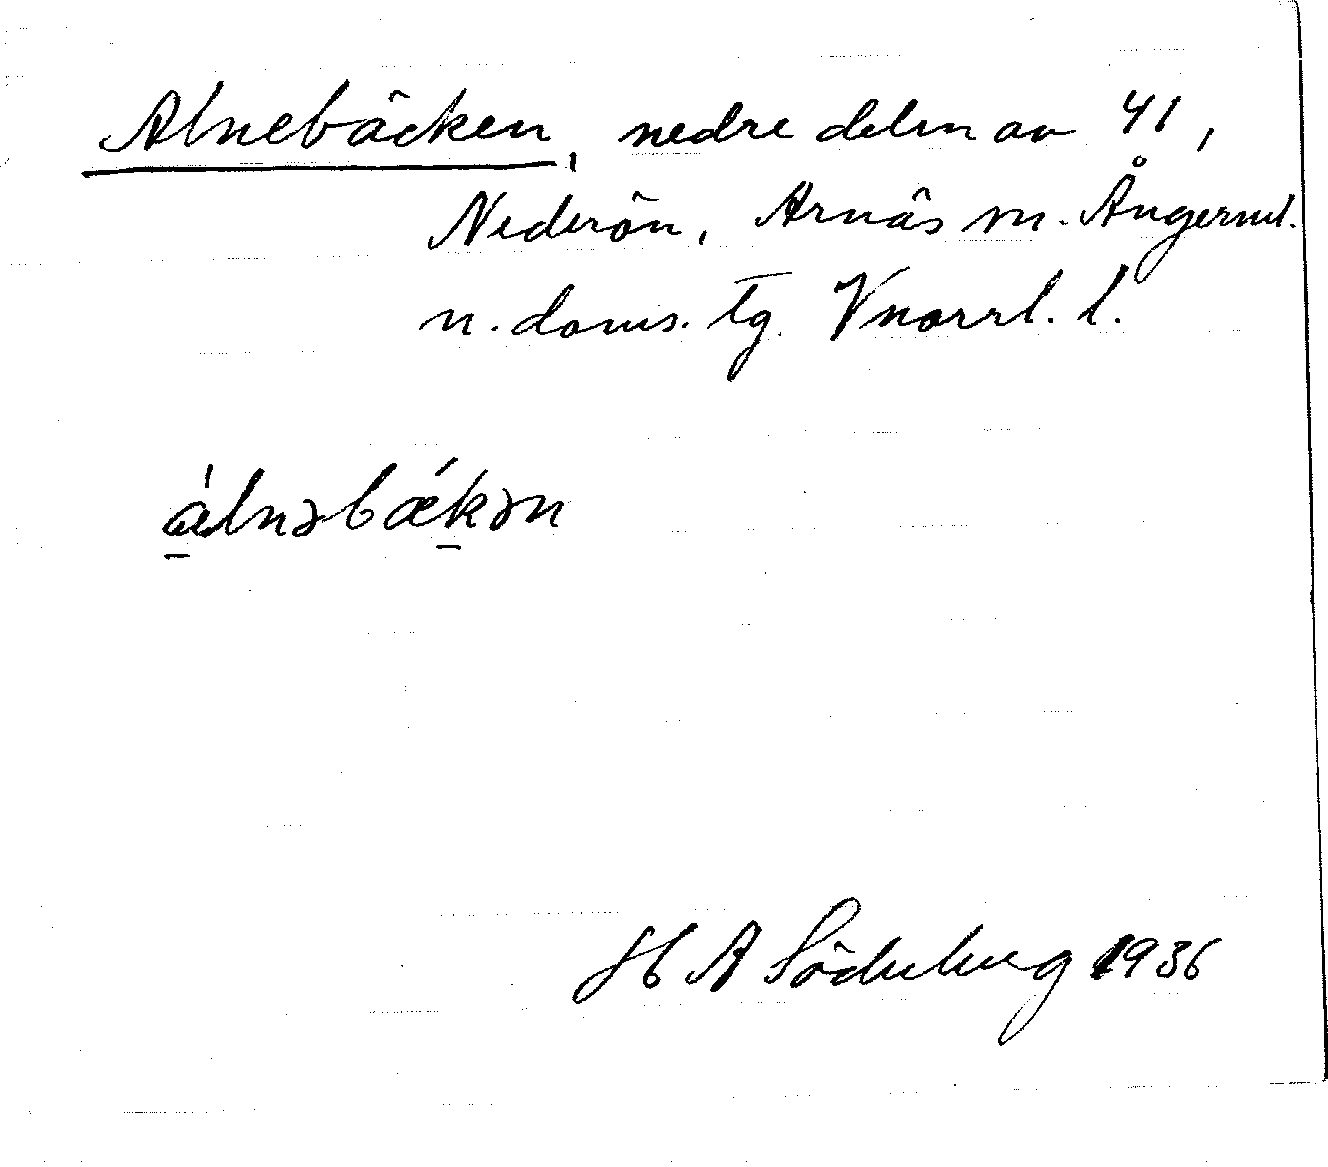 Alnebäcken, nedre delen av 41,
Nederön, Arnäs sn. Ångerml.
n. doms. tg. Vnorrl. l.
a̱̍lnəbǽḵən
H A Söderberg 1936